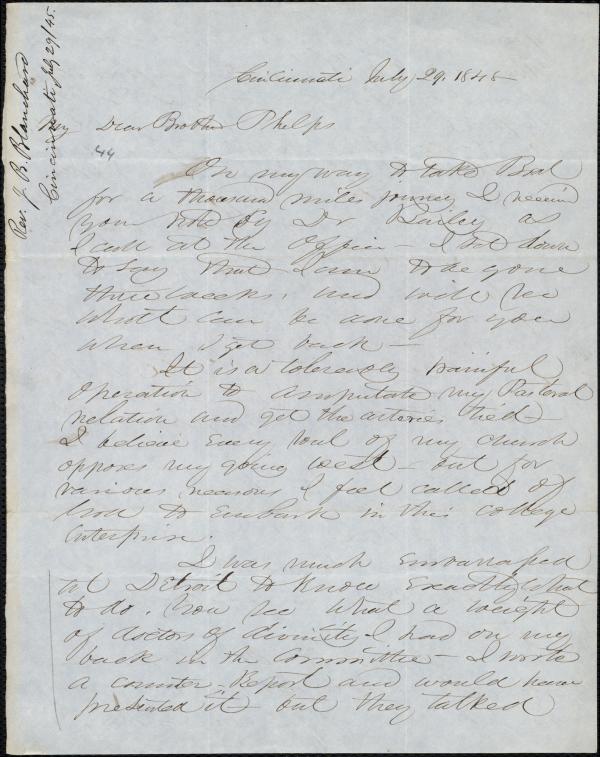 Rev. J. B. Blanchard
Cincinnati July 29/45.
Cincinnati July 29. 1845
My Dear Brother Phelps
44
On my way to take Boat
for a thousand miles journey I receivd
your note by Dr Bailey as
I call at the Office — I sit down
to say that I am to be gone
three weeks, and will see
what can be done for you
when I get back —
It is a tolerably painful
operation to amputate my Pastoral
relation and get the arteries tied —
I believe every soul of my church
opposes my going west — but for
various reasons I feel called of
God to embark in this college
enterprise.
I was much embarrassed
at Detroit to know exactly what
to do. You see what a weight
of doctors of divinity I had on my
back in the Committee — I wrote
a counter-Report and would have
presented it — but they talked